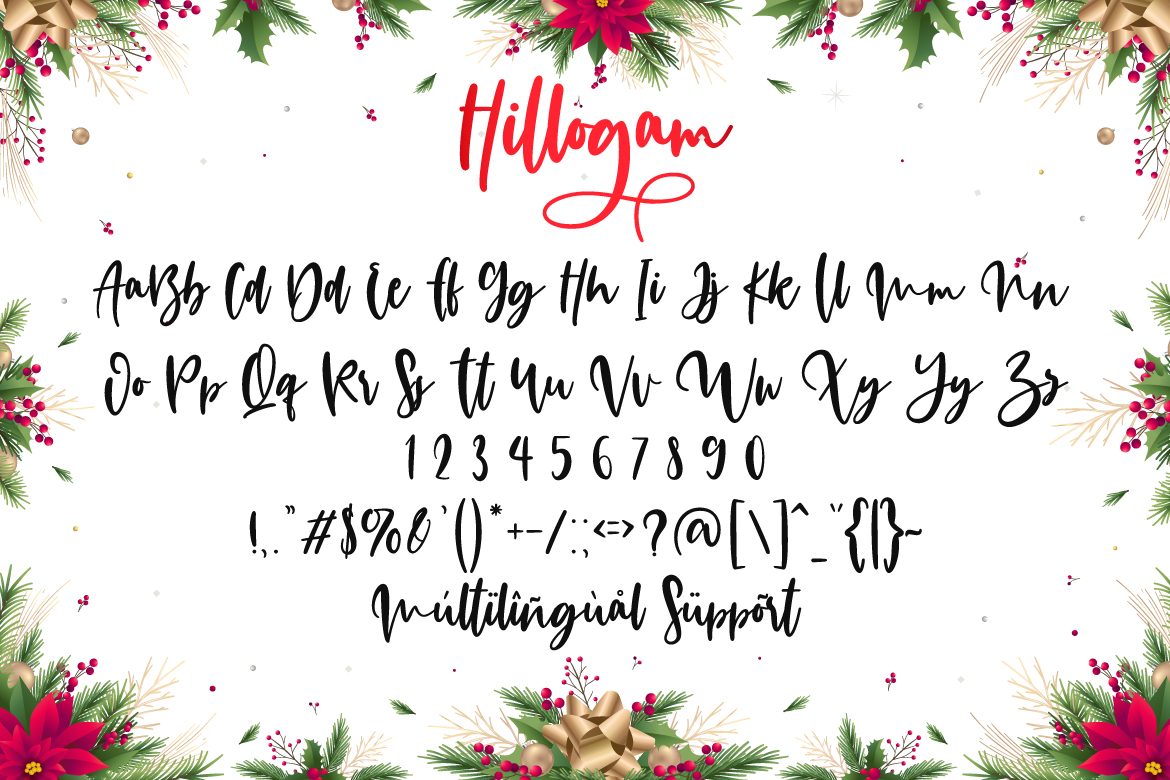 Hillogam
Aa Bb Cc Dd Ee Ff Gg Hh Ii Jj Kk Ll Mm Nn
Oo Pp Qq Rr Ss Tt Uu Vv Ww Xx Yy Zz
1 2 3 4 5 6 7 8 9 0
!,."#$%&'()*+-/:;<=>?@[\]^_¨{|}~
Múltïlîñgùål Süppõrt